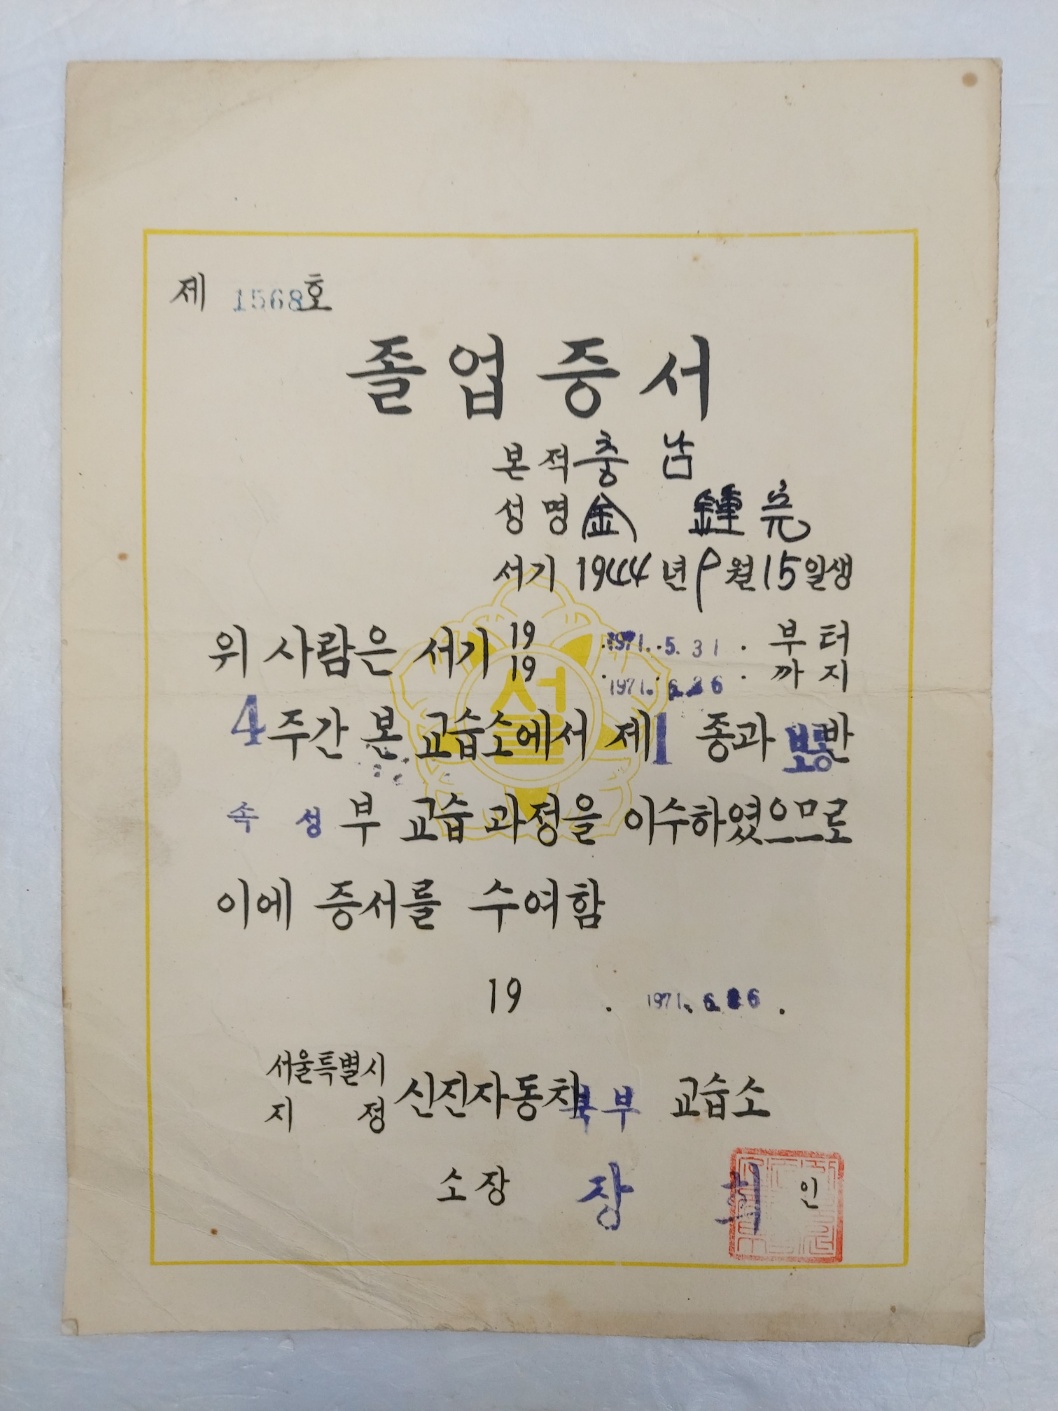 제 1568호
졸업증서
본적 충남
성명 金 鍾亮
서기 1944년 9월 15일생
위 사람은 서기 19 . 1971. 5. 31 . 부터
19 . 1971. 6. 26 . 까지
4주간 본 교습소에서 제1종과 보통반
속성부 교습과정을 이수하였으므로
이에 증서를 수여함
19 . 1971. 6. 26 .
서울특별시
지정
신진자동차 북부 교습소
소장 장 인
서울